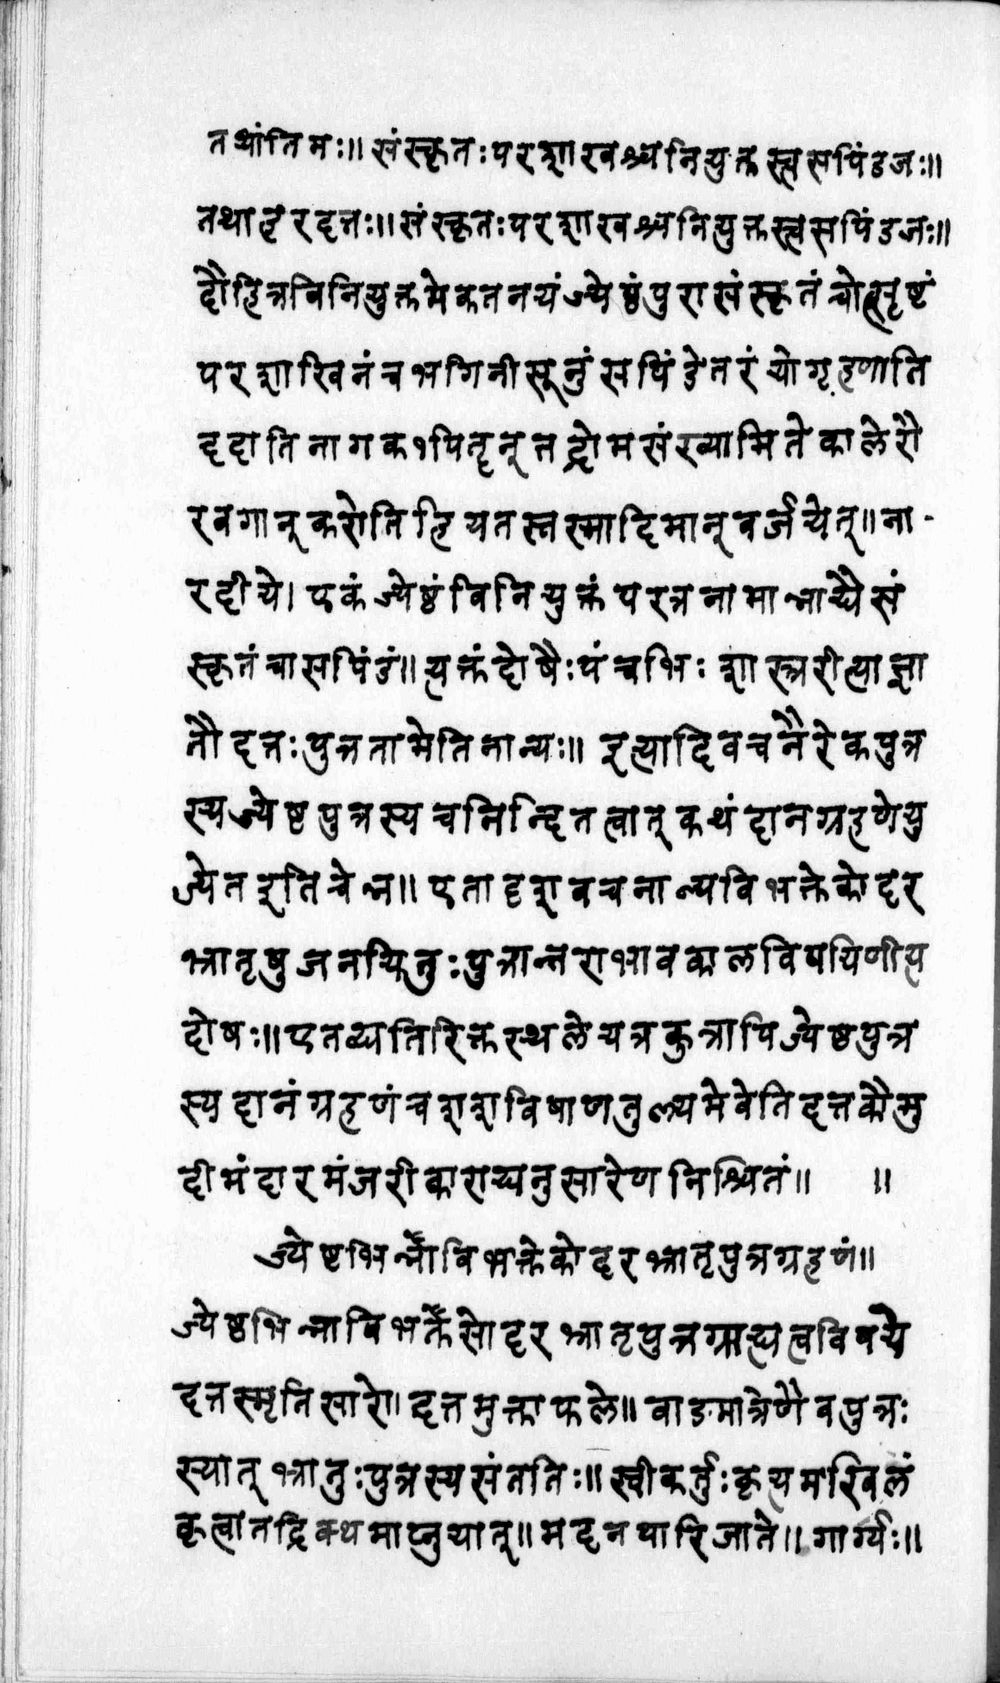 तथांतिमः॥ संस्कृतः परशाखश्चनियुक्तस्त्वसपिंडजः॥
तथात्वरदत्तः॥ संस्कृतः परशाखश्चनियुक्तस्त्वसपिंडजः॥
दौहित्रविनियुक्तमेकतनयंज्येष्ठंपुरासंस्कृतंचोत्सृष्टं
परशाखिनंचभगिनीसूनुंसपिंडेतरंयोगृह्णाति
ददातिनागक१पितॄन्तद्रोमसंख्यामितेकालेरौ
रवगान्करोतिहियतस्तस्मादिमान्वर्जयेत्॥ ना-
रदीये। एकंज्येष्ठंविनियुक्तंपरत्रनामान्नाद्यैसं
स्कृतंचासपिंडं॥ त्यक्तंदोषैःपंचभिः शास्त्ररीत्याज्ञा
तौदत्तःपुत्रतामेतिनान्यः॥ इत्यादिवचनैरेकपुत्र
स्यज्येष्टपुत्रस्यचनिन्दितत्वात्कथंदानग्रहणेयु
ज्येतइतिचेन्न॥ एतादृशवचनान्यविभक्तेकोदर
भ्रातृषुजनयितुःपुत्रान्तराभावकालविषयिणीत्य
दोषः॥ एतद्व्यतिरिक्तस्थलेयत्रकुत्रापिज्येष्ठपुत्र
स्यदानंग्रहणंचशशविषाणतुल्यमेवेतिदत्तकौमु
दीमंदारमंजरीकाराद्यनुसारेणनिश्चितं॥ ॥
ज्येष्टभिन्नाविभक्तेकोदरभ्रातृपुत्रग्रहणं॥
ज्येष्ठभिन्नाविभक्तैसोदरभ्रातृपुत्रग्राह्यत्वविषये
दत्तस्मृतिसारे। दत्तमुक्ताफले॥ वाङमात्रेणैवपुत्रः
स्यात् भ्रातुःपुत्रस्यसंततिः॥ स्वीकर्तुःकृत्यमखिलं
कृत्वातद्रिक्थमाप्नुयात्॥ मदनपारिजाते॥ गार्ग्यः॥